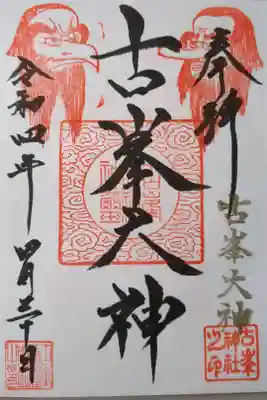 奉拝
古峯大神
令和四年 四月三十日
古峯大神
古峯
神社
之印